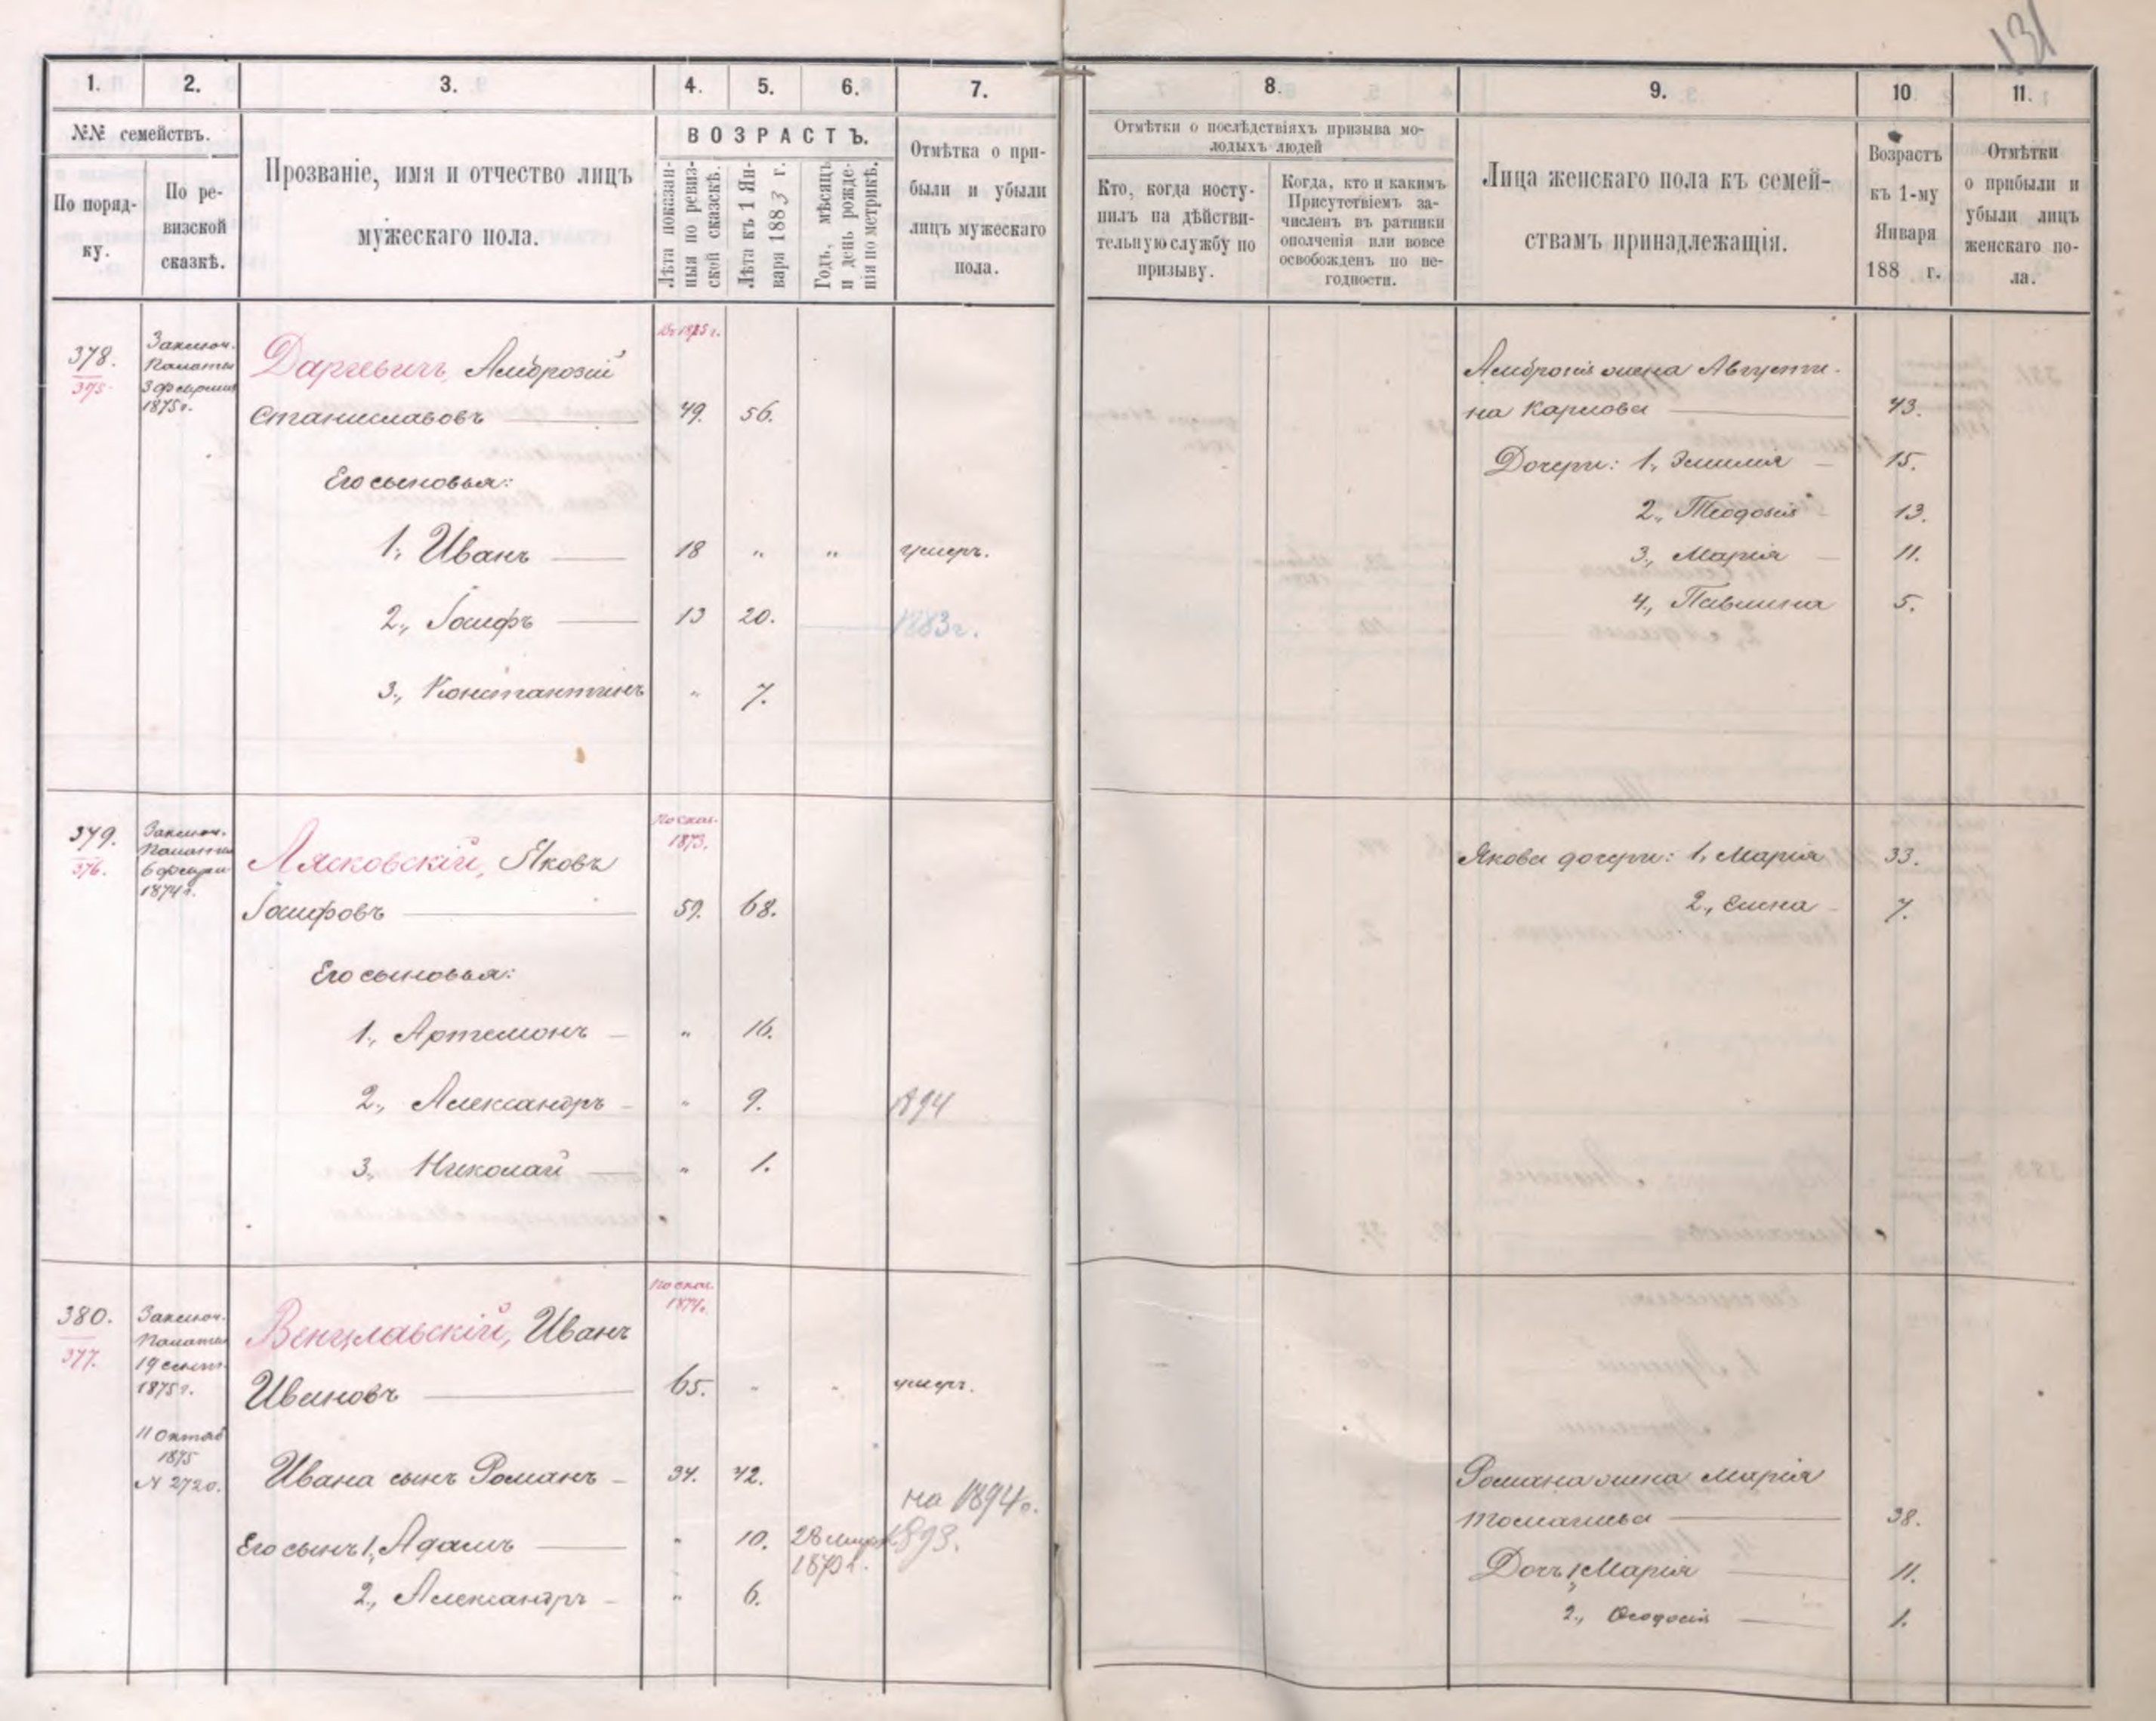 131
1.
2.
3.
4.
5.
6.
7.
8.
9.
10
11.
№№ семействъ.
По поряд-
ку.
По ре-
визской
сказкѣ.
Прозваніе, имя и отчество лицъ
мужескаго пола.
ВОЗРАСТЪ.
Лѣта показан-
ныя по ревиз-
ской сказскѣ.
Лѣта къ 1 Ян-
варя 1883 г.
Годъ, мѣсяцъ
и день рожде-
нія по метрикѣ.
Отмѣтка о при-
были и убыли
лицъ мужескаго
пола.
Отмѣтки о послѣдствіяхъ призыва мо-
лодыхъ людей
Кто, когда посту-
пилъ на дѣйстви-
тельную службу по
призыву.
Когда, кто и какимъ
Присутствіемъ за-
численъ въ ратники
ополченія или вовсе
освобожденъ по не-
годности.
Лица женскаго пола къ семей-
ствамъ принадлежащія.
Возрастъ
къ 1-му
Января
188 г.
Отмѣтки
о прибыли и
убыли лицъ
женскаго по-
ла.
378.
375.
Заключ.
Палаты
3 февраля
1875 г.
Въ 1875 г.
Даркевичъ, Амброзій
Станиславовъ 49. 56.
Его сыновья:
1., Иванъ 18 " " умеръ.
2., Іосифъ 13 20. 1883 г.
3., Константинъ " 7.
Амброзія жена Августи-
на Карлова 43.
Дочери: 1., Эмилія 15.
2., Теодозія 13.
3., Марія 11.
4., Павлина 5.
379.
376.
Заключ.
Палаты
6 феврал.
1874 г.
По сказ.
1873.
Лясковскій, Яковъ
Іосифовъ 59. 68.
Его сыновья:
1., Артемонъ " 16.
2., Александръ " 9. 1894
3., Николай " 1.
Якова дочери: 1, Марія 33.
2., Елена 7.
380.
377.
Заключ.
Палаты
19 сент.
1875 г.
11 Октяб
1875
№ 2720.
По сказ.
1874.
Венцлавскій, Иванъ
Ивановъ 65. " " умеръ.
Ивана сынъ Романъ 34. 42.
на 1894 г.
Его сынъ 1., Адамъ " 10. 28 1893.
2., Александръ " 6.
Романа жена Марія
Томашева 38.
Дочь 1, Марія 11.
2., Ѳеодосія 1.